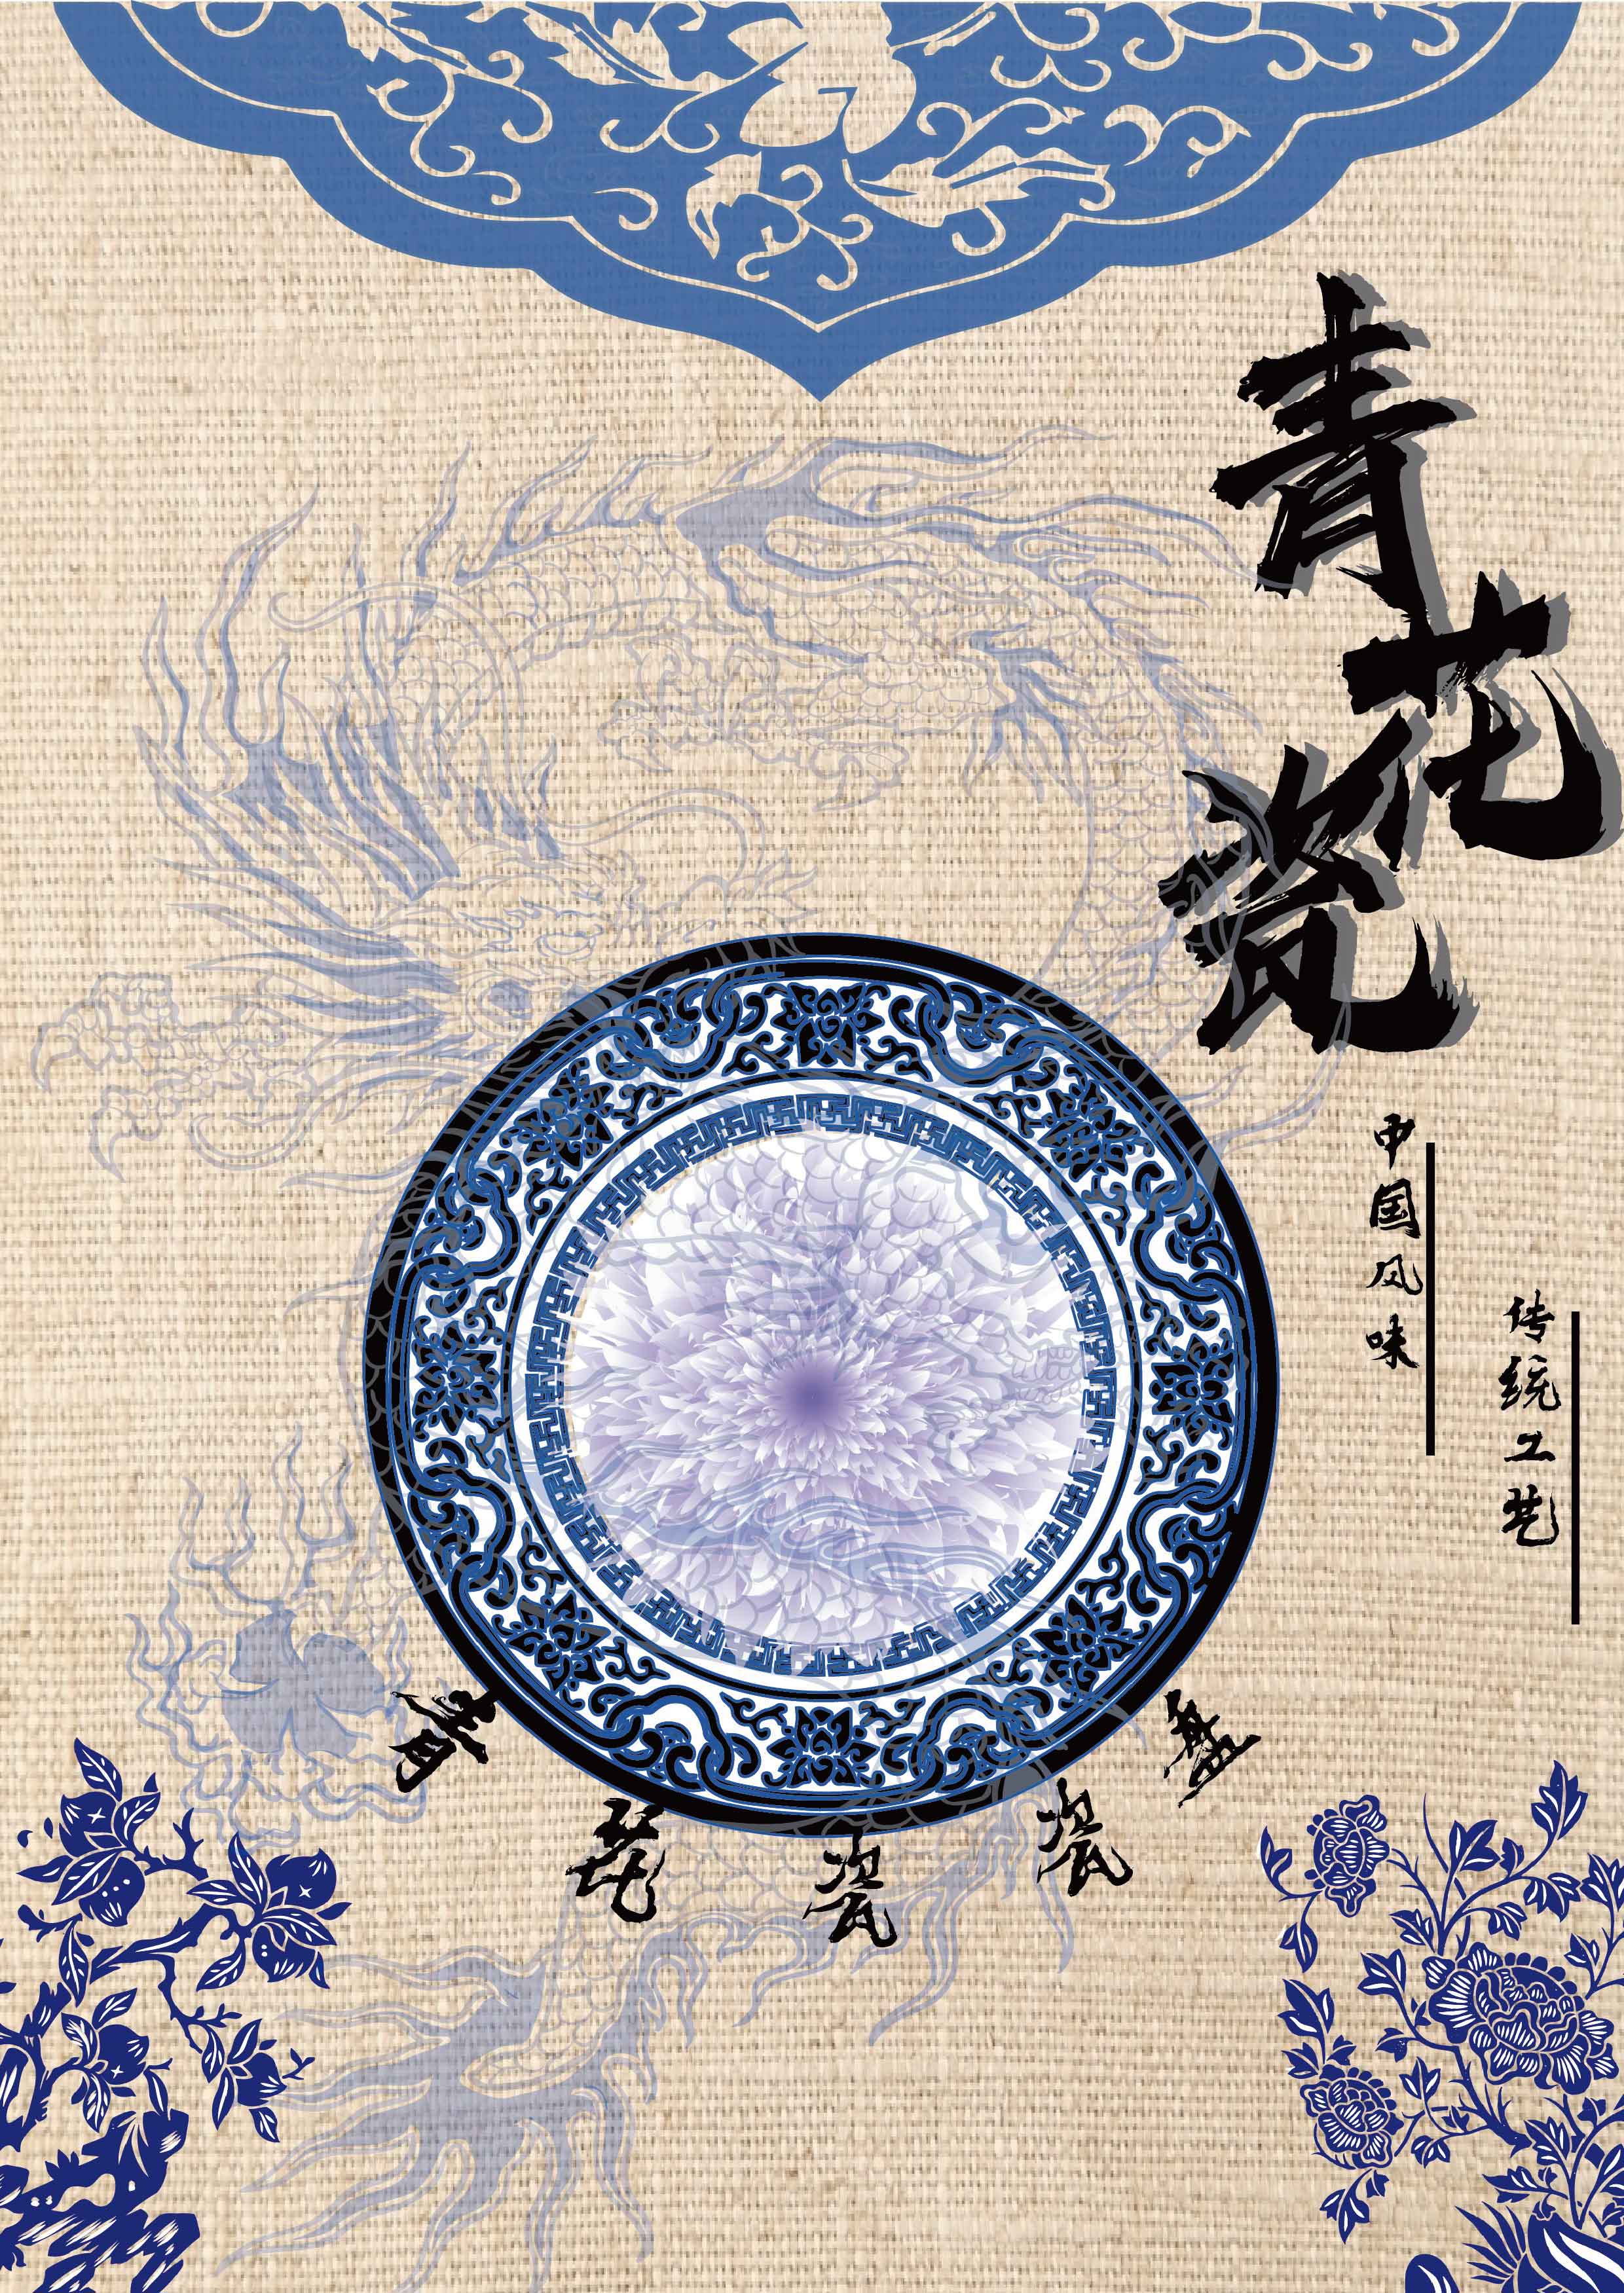 青花瓷
中国风味
传统工艺
青花瓷瓷盘